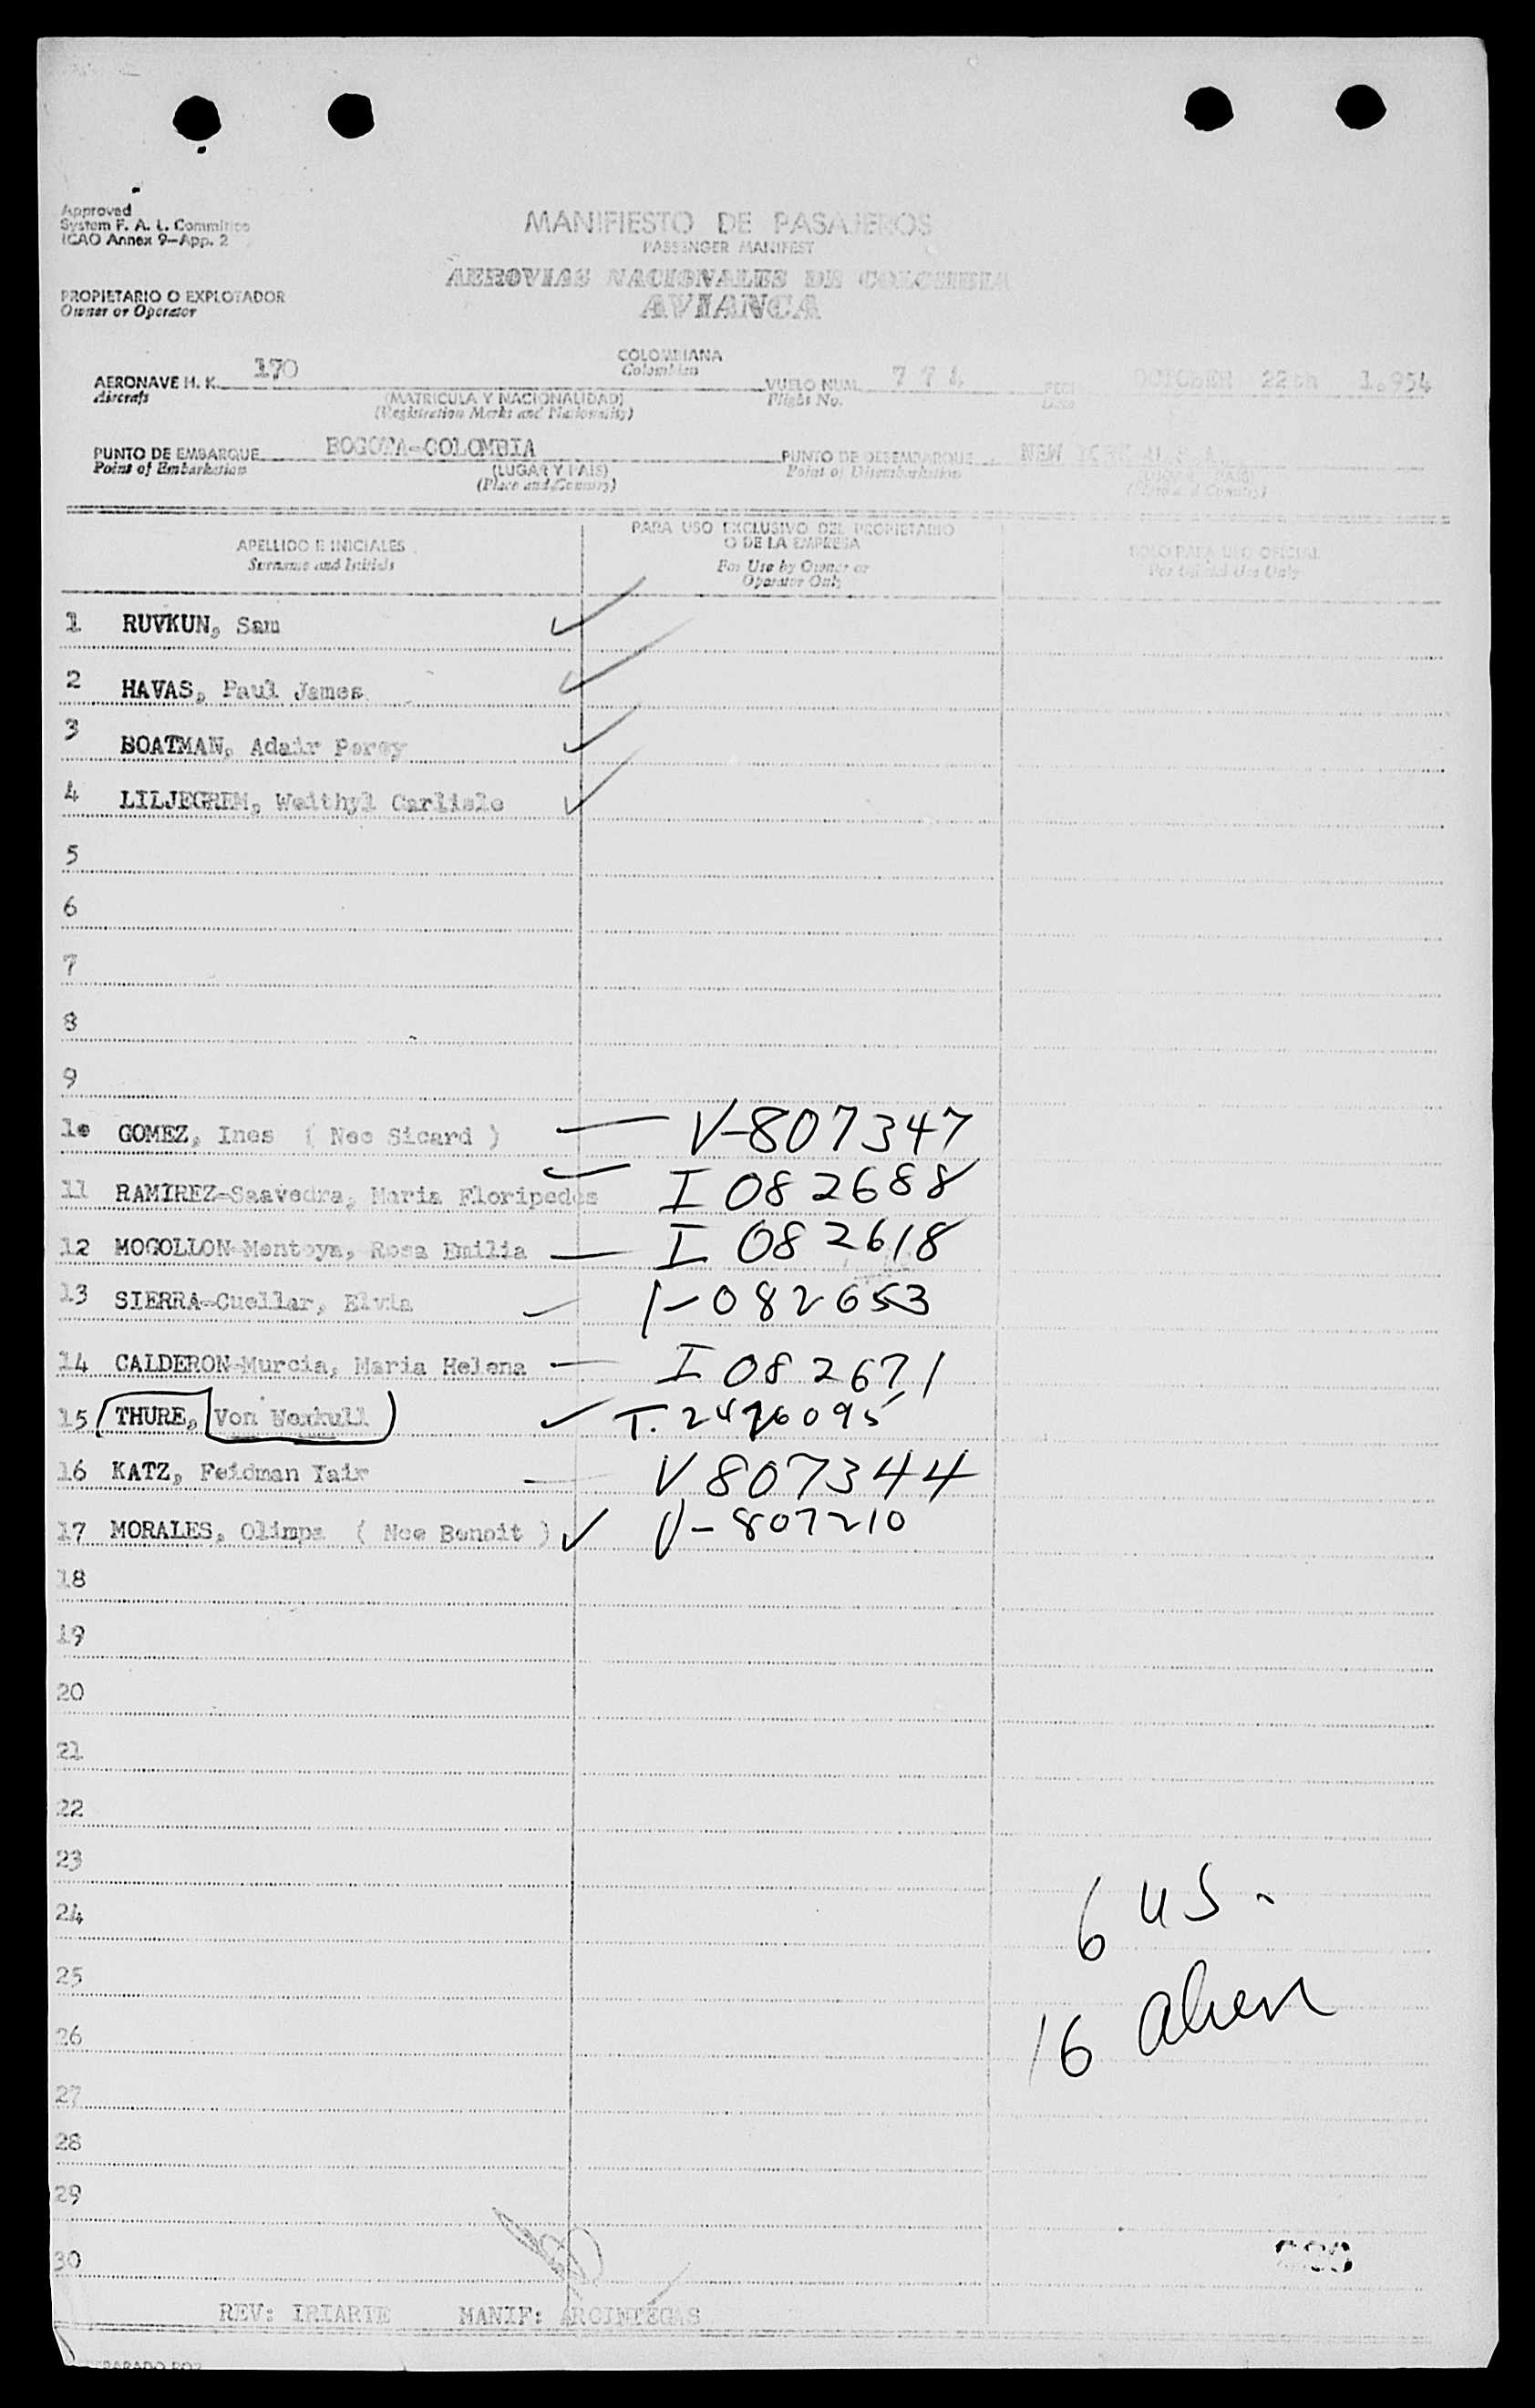 Approved
System F. A. L. Committee
ICAO Annex 9-App. 2
MANIFIESTO DE PASAJEROS
PASSENGER MANIFEST
AEROVIAS NACIONALES DE COLOMBIA
AVIANCA
PROPIETARIO O EXPLOTADOR
Owner or Operator
AERONAVE H. K. 170 COLOMBIANA VUELO NUM. OCTOBER 22th 1.954
Aircraft (MATRICULA Y NACIONALIDAD) Colombian Flight No. Date
(Registration Marks and Nationality)
PUNTO DE EMBARQUE BOGOTA-COLOMBIA PUNTO DE DESEMBARQUE NEW YORK U.S.A.
Point of Embarkation (LUGAR Y PAIS) Point of Disembarkation (LUGAR Y PAIS)
(Place and Country) (Place and Country)
APELLIDO E INICIALES PARA USO EXCLUSIVO DEL PROPIETARIO O DE LA EMPRESA SOLO PARA USO OFICIAL
Surname and Initials For Use by Owner or Operator Only For Official Use Only
1 RUVKUN, Sam
2 HAVAS, Paul James
3 BOATMAN, Adair Percy
4 LILJEGREM, Weithyl Carlisle
5
6
7
8
9
10 GOMEZ, Ines ( Nee Sicard ) V-807347
11 RAMIREZ-Saavedra, Maria Floripedes I 082688
12 MOGOLLON-Montoya, Rosa Emilia I 082618
13 SIERRA-Cuellar, Elvia I-082653
14 CALDERON-Murcia, Maria Helena I 082671
15 THURE, Von T. 2476095
16 KATZ, Feidman Yair V 807344
17 MORALES, Olimpa ( Nee Benoit ) V-807210
18
19
20
21
22
23
24 6 US
25
26 16 alien
27
28
29
30
REV: IRIARTE MANIF: ARCINIEGAS